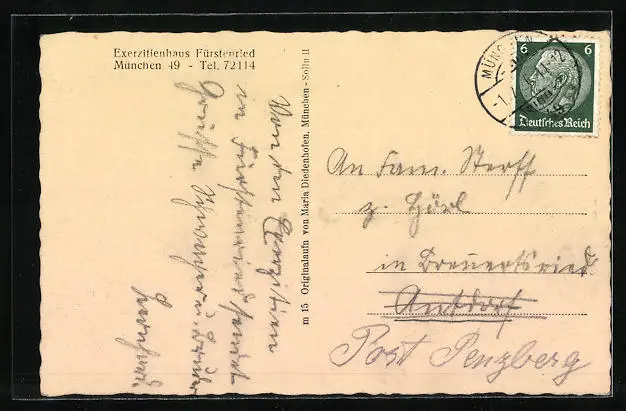 Exerzitienhaus Fürstenried
München 49 - Tel. 72114
Von den Exerzitien
in Fürstenried sendet
Grüße
m 15 Originalaufn von Maria Diedenhofen, München - Solln II
MÜNCHEN
6 6
Deutsches Reich
An Fam. Sterff
z. Hörl
in Breuertsried
Antdorf
Post Penzberg